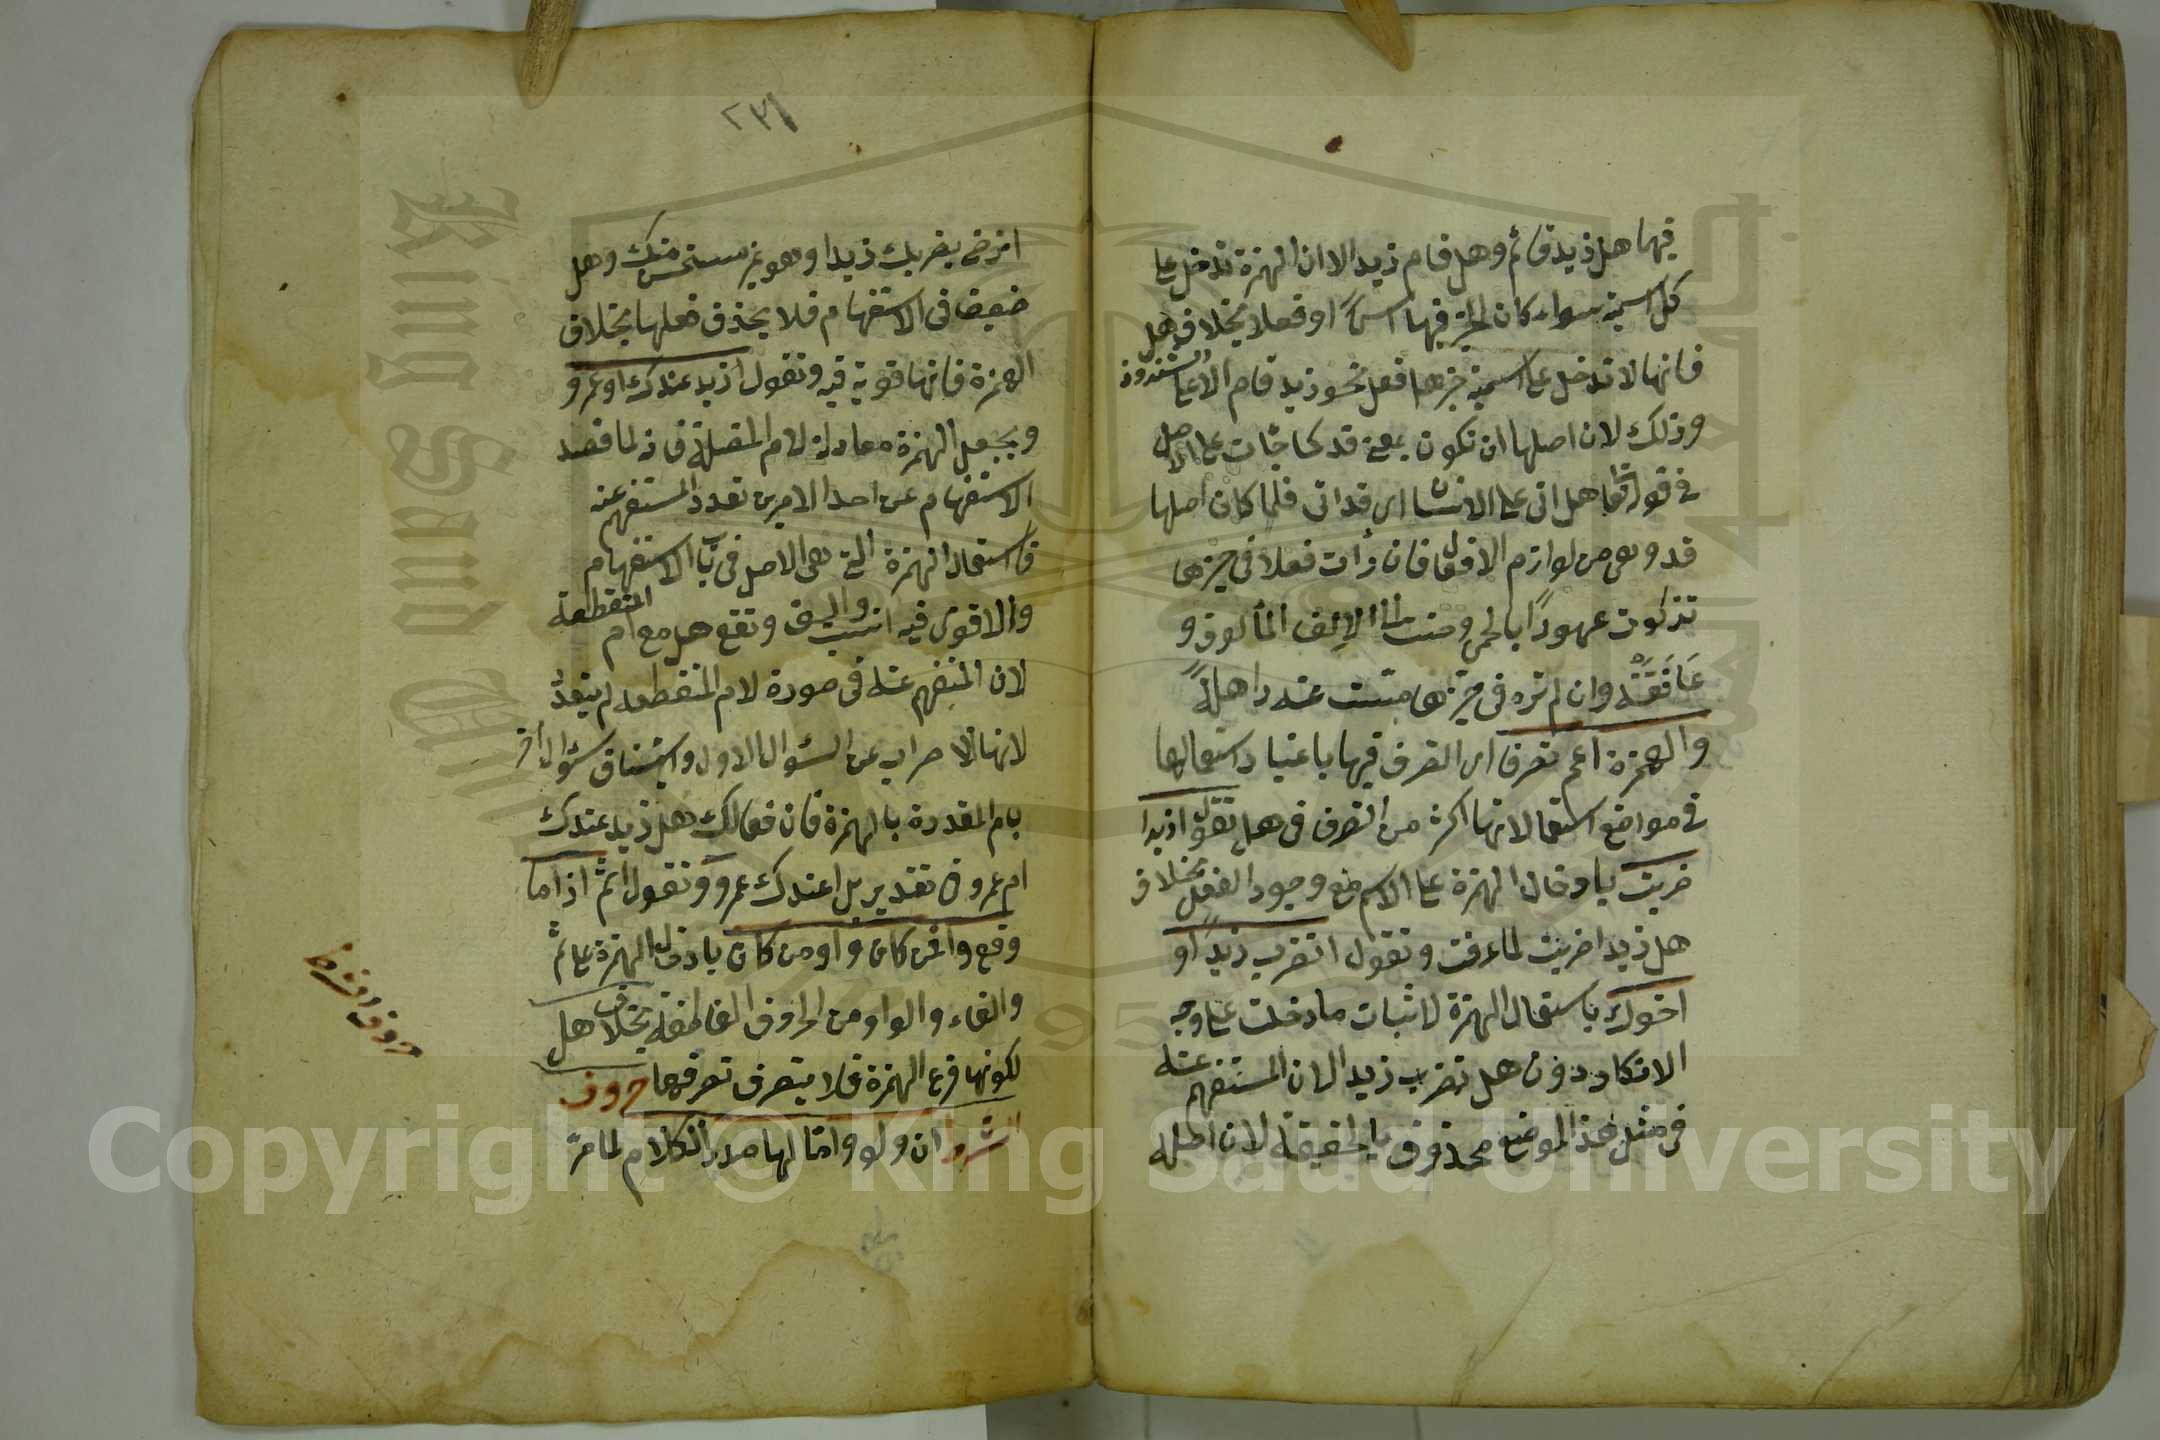 فيها هل زيد قائم وهل قام زيد الا ان الهمزة تدخل على
كل اسمية سواء كان الخبر فيها اسمًا او فعلا بخلاف هل
فانها لا تدخل على اسمية خبرها فعل نحو زيد قام الا على الشذوذ
وذلك لان اصلها ان تكون بمعنى قد كما جاءت على الاصل
فى قوله تعا هل اتى على الانسان اى قد اتى فلما كان اصلها
قد وهى من لوازم الافعال فان رأت فعلا فى حيزها
تذكرت عهودًا بالحمى وحنت الى الالف المألوف و
عانقته وان لم تره فى حيزها تسلت عنه ذاهلةً
والهمزة اعم تصرفا اى التصرف فيها باعتبار استعمالها
فى مواضع استعمالاتها اكثر من التصرف فى هل تقول ازيدا
ضربت بادخال الهمزة على الاسم مع وجود الفعل بخلاف
هل زيدا ضربت لما عرفت وتقول اتضرب زيدًا و
اخوك باستعمال الهمزة لاثبات ما دخلت على وجه
الانكار دون هل تضرب زيدا لان المستفهم عنه
فى مثل هذا الموضع محذوف بالحقيقة لان اصله
٢٣١
اترضى بضربك زيدا وهو غير مستحسن منك وهل
ضعيف فى الاستفهام فلا يحذف فعلها بخلاف
الهمزة فانها قوية فيه وتقول ازيد عندك او عمرو
ويجعل الهمزة معادلة لام المتصلة فانه لما قصد
الاستفهام عن احد الامرين تعدد المستفهم عنه
فاستعمال الهمزة التى هى الاصل فى باب الاستفهام
والاقوى فيه انسب واليق وتقع هل مع ام المنقطعة
لان المستفهم عنه فى صورة لام المنقطعة لم يتعدد
لانها للاضراب عن السؤال الاول واستيناف سؤال آخر
بام المقدرة بالهمزة فان فى قولك هل زيد عندك
ام عمرو فى تقدير بل اعندك عمرو وتقول اثم اذا ما
وقع وافمن كان واو من كان بادخال الهمزة على ثم
والفاء والواو من الحروف العاطفة بخلاف هل
لكونها فرع الهمزة فلا يتصرف تصرفها حروف
الشرط ان ولو واما لها صدر الكلام لما مرّ
حروف الشرط